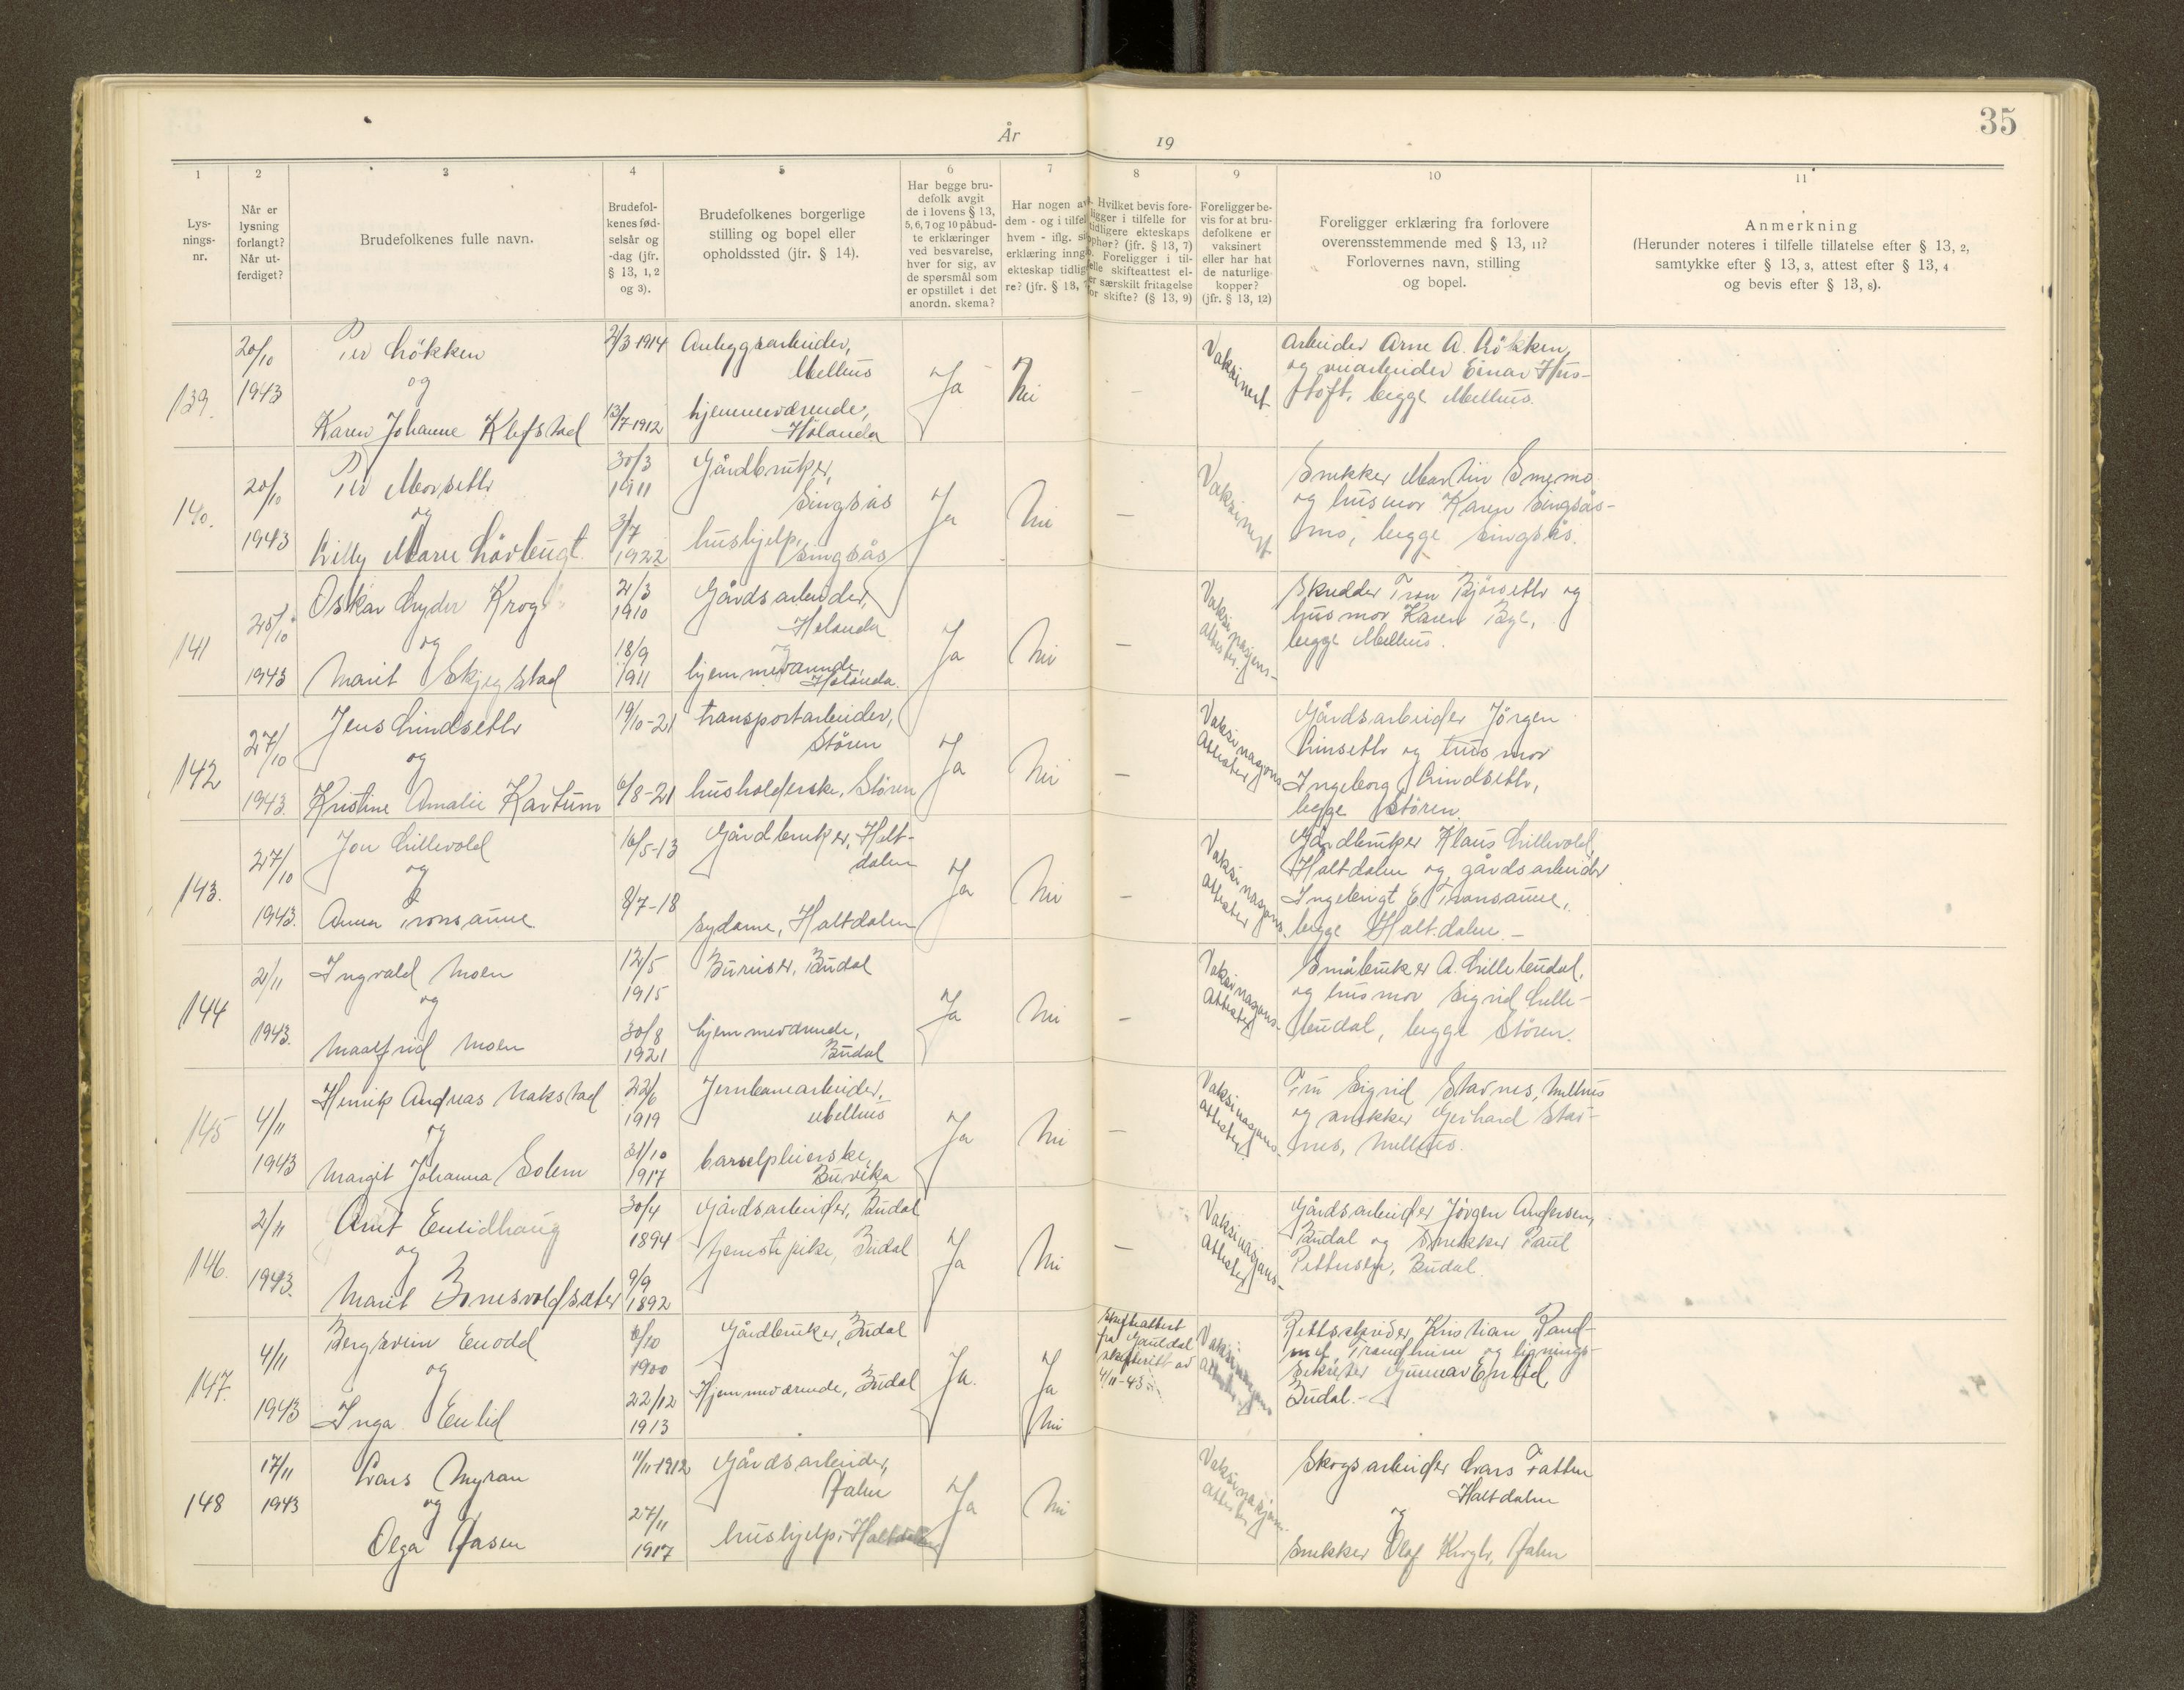 35
År 19
1
2
3
4
5
6
7
8
9
10
11
Lys-
nings-
nr.
Når er
lysning
forlangt?
Når ut-
ferdiget?
Brudefolkenes fulle navn.
Brudefol-
kenes fød-
selsår og
-dag (jfr.
§ 13, 1, 2
og 3).
Brudefolkenes borgerlige
stilling og bopel eller
opholdssted (jfr. § 14).
Har begge bru-
defolk avgit
de i lovens § 13,
5, 6, 7 og 10 påbud-
te erklæringer
ved besvarelse,
hver for sig, av
de spørsmål som
er opstillet i det
anordn. skema?
Har nogen av
dem - og i tilfel
hvem - iflg. si
erklæring inng
ekteskap tidlig
re? (jfr. § 13, 7
Hvilket bevis fore-
ligger i tilfelle for
tidligere ekteskaps
ophør? (jfr. § 13, 7)
Foreligger i til-
elle skifteattest el-
er særskilt fritagelse
for skifte? (§ 13, 9)
Foreligger be-
vis for at bru-
defolkene er
vaksinert
eller har hat
de naturlige
kopper?
(jfr. § 13, 12)
Foreligger erklæring fra forlovere
overensstemmende med § 13, 11?
Forlovernes navn, stilling
og bopel.
Anmerkning
(Herunder noteres i tilfelle tillatelse efter § 13, 2,
samtykke efter § 13, 3, attest efter § 13, 4
og bevis efter § 13, 8).
139.
20/10
1943
Per Løkken
og
Karen Johanne Klefstad
2/3 1914
13/7 1912
Anleggsarbeider,
Melhus
hjemmeværende,
Hölanda
Ja
Nei
-
Vaksinert
Arbeider Arne A. Løkken,
og veiarbeider Einar Hus-
toft, begge Melhus.
140.
20/10
1943
Per Morseth
og
Lilly Marie Løvbugt
30/3
1911
3/7
1922
Gårdbruker,
Singsås
hushjelp,
Singsås
Ja
Nei
-
Vaksinert
Snekker Martin Smemo
og husmor Karen Singsås-
mo, begge Singsås.
141
25/10
1943
Oskar Lyder Krog
og
Marit Skjegstad
2/3
1910
18/9
1911
Gårdsarbeider,
Hølanda
og
hjemmeværende
Hølanda.
Ja
Nei
-
Vaksinasjons-
attester.
Skredder Tron Bjørseth og
husmor Karen Bye,
begge Melhus.
142
27/10
1943.
Jens Lindseth
og
Kristine Amalie Kartum
19/10-21
6/8-21
transportarbeider,
Støren
husholderske, Støren
Ja
Nei
-
Vaksinasjons
attester
Gårdsarbeider Jørgen
Linseth og husmor
Ingeborg Lindseth,
begge Støren.
143.
27/10
1943.
Jon Lillevold
og
Anna Tronsaune.
16/5-13
8/7-18
Gårdbruker, Halt-
dalen
Sydame, Haltdalen
Ja
Nei
-
Vaksinasjons-
attester
Gårdbruker Klaus Lillevold,
Haltdalen og gårdsarbeider
Ingebrigt E. Tronsaune,
begge Haltdalen. -
144
2/11
1943.
Ingvald Moen
og
Maalfrid Moen
12/5
1915
30/8
1921
Bureiser, Budal
hjemmeværende,
Budal
Ja
Nei
-
Vaksinasjons-
attester
Småbruker A. Lillebudal,
og husmor Sigrid Lille-
budal, begge Støren.
145
4/11
1943
Henrik Andreas Hakstad
og
Margit Johanna Solem
22/6
1919
31/10
1917
Jernbanearbeider,
Melhus
barselpleierske,
Buvika
Ja
Nei
-
Vaksinasjons-
attester
Fru Sigrid Stavnes, Melhus
og snekker Gerhard Stav-
nes, Melhus.
146.
2/11
1943.
Arnt Enlidhaug
og
Marit Bonesvoldsæter
30/4
1894
9/9
1892
Gårdsarbeider, Budal
tjenestepike, Budal
Ja
Nei
-
Vaksinasjons-
attester
Gårdsarbeider Jørgen Andersen,
Budal og Snekker Paul
Pettersen, Budal.
147.
4/11
1943
Bergsvein Enodd
og
Inga Enlid
6/10
1900
22/12
1913
Gårdbruker, Budal
Hjemmeværende, Budal
Ja.
Ja
Nei
Skifteattest
fra Gauldal
skifterett av
4/11-43
Vaksinasjons
attester
Rettsskriver, Kristian Rand-
Trondheim og lignings-
sekretær Gunnar Enlid,
Budal. -
148
17/11
1943
Lars Myran
og
Olga Aasen
11/11-1912
27/11
1917
Gårdsarbeider,
Ålen
hushjelp, Haltdalen
Ja
Nei
Vaksinasjons-
attester
Skogsarbeider Lars Fatten
Haltdalen
og
snekker Olaf Krogh, Ålen